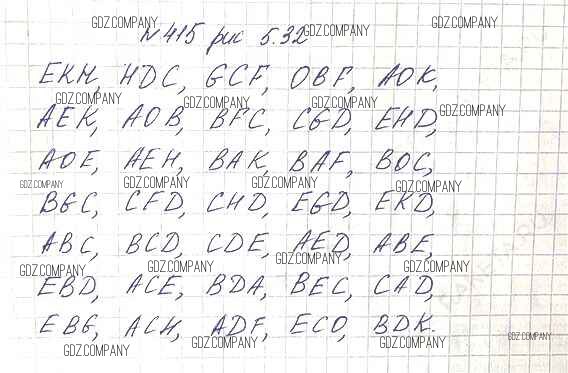 GDZ.COMPANY GDZ.COMPANY GDZ.COMPANY
№415 рис 5.32
EKH, HDC, GCF, OBF, AOK,
GDZ.COMPANY GDZ.COMPANY GDZ.COMPANY GDZ.COMPANY
AEK, AOB, BFC, CGD, EHD,
AOE, AEH, BAK BAF, BOC,
GDZ.COMPANY GDZ.COMPANY GDZ.COMPANY GDZ.COMPANY
BGC, CFD, CHD, EGD, EKD,
ABC, BCD, CDE, AED, ABE,
GDZ.COMPANY GDZ.COMPANY GDZ.COMPANY GDZ.COMPANY
EBD, ACE, BDA, BEC, CAD,
EBG, ACH, ADF, ECO, BDK.
GDZ.COMPANY GDZ.COMPANY GDZ.COMPANY GDZ.COMPANY